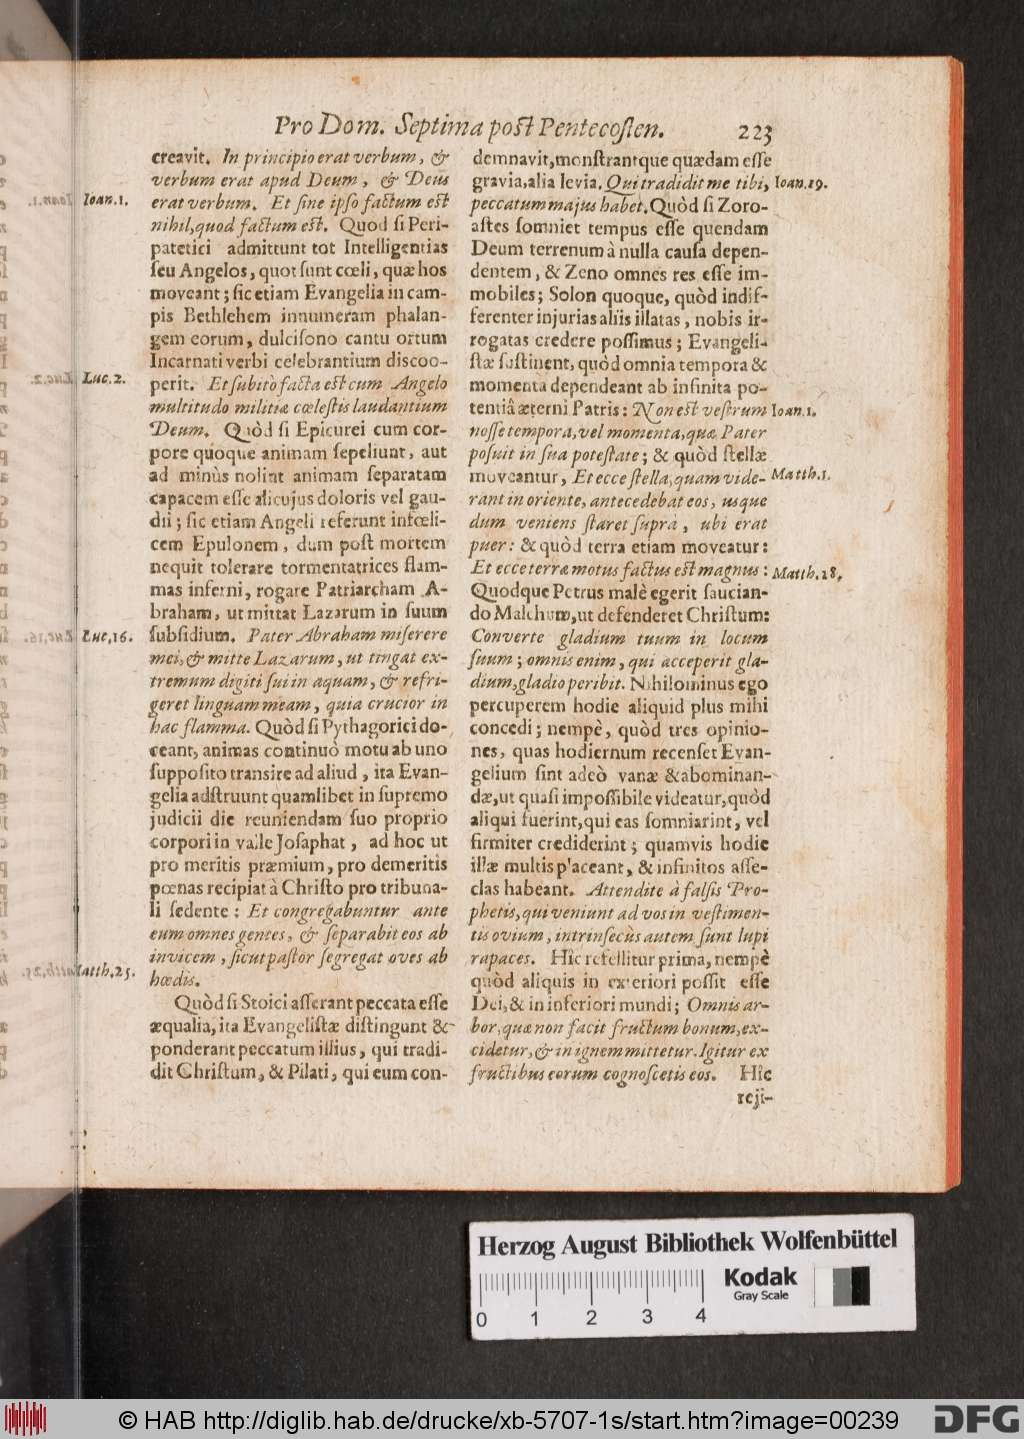 Pro Dom. Septima post Pentecosten. 223
creavit. In principio erat verbum, &
verbum erat apud Deum, & Deus
Ioan.1. erat verbum. Et sine ipso factum est
nihil, quod factum est. Quod si Peri-
patetici admittunt tot Intelligentias
seu Angelos, quot sunt cœli, quæ hos
moveant; sic etiam Evangelia in cam-
pis Bethlehem innumeram phalan-
gem eorum, dulcisono cantu ortum
Incarnati verbi celebrantium discoo-
Luc.2. perit. Et subitò facta est cum Angelo
multitudo militiæ cœlestis laudantium
Deum. Quòd si Epicurei cum cor-
pore quoque animam sepeliunt, aut
ad minùs nolint animam separatam
capacem esse alicujus doloris vel gau-
dii; sic etiam Angeli referunt infœli-
cem Epulonem, dum post mortem
nequit tolerare tormentatrices flam-
mas inferni, rogare Patriarcham A-
braham, ut mittat Lazarum in suum
Luc,16. subsidium. Pater Abraham miserere
mei, & mitte Lazarum, ut tingat ex-
tremum digiti sui in aquam, & refri-
geret linguam meam, quia crucior in
hac flamma. Quòd si Pythagorici do-
ceant, animas continuò motu ab uno
supposito transire ad aliud, ita Evan-
gelia adstruunt quamlibet in supremo
judicii die reuniendam suo proprio
corpori in valle Josaphat, ad hoc ut
pro meritis præmium, pro demeritis
pœnas recipiat à Christo pro tribuna-
li sedente: Et congregabuntur ante
eum omnes gentes, & separabit eos ab
invicem, sicut pastor segregat oves ab
Matth.25. hœdis.
Quòd si Stoici asserant peccata esse
æqualia, ita Evangelistæ distingunt &
ponderant peccatum illius, qui tradi-
dit Christum, & Pilati, qui eum con-
demnavit, monstrantque quædam esse
gravia, alia levia. Qui tradidit me tibi, Ioan.19.
peccatum majus habet. Quòd si Zoro-
astes somniet tempus esse quendam
Deum terrenum à nulla causa depen-
dentem, & Zeno omnes res esse im-
mobiles; Solon quoque, quòd indif-
ferenter injurias aliis illatas, nobis ir-
rogatas credere possimus; Evangeli-
stæ sustinent, quòd omnia tempora &
momenta dependeant ab infinita po-
tentiâ æterni Patris: Non est vestrum Ioan.1.
nosse tempora, vel momenta, quæ Pater
posuit in sua potestate; & quòd stellæ
moveantur, Et ecce stella, quam vide- Matth.1.
rant in oriente, antecedebat eos, usque
dum veniens staret supra, ubi erat
puer: & quòd terra etiam moveatur:
Et ecce terræ motus factus est magnus: Matth.28.
Quodque Petrus malè egerit saucian-
do Malchum, ut defenderet Christum:
Converte gladium tuum in locum
suum; omnis enim, qui acceperit gla-
dium, gladio peribit. Nihilominus ego
percuperem hodie aliquid plus mihi
concedi; nempè, quòd tres opinio-
nes, quas hodiernum recenset Evan-
gelium sint adeò vanæ & abominan-
dæ, ut quasi impossibile videatur, quòd
aliqui fuerint, qui eas somniarint, vel
firmiter crediderint; quamvis hodie
illæ multis placeant, & infinitos asse-
clas habeant. Attendite à falsis Pro-
phetis, qui veniunt ad vos in vestimen-
tis ovium, intrinsecùs autem sunt lupi
rapaces. Hîc refellitur prima, nempè
quòd aliquis in exteriori possit esse
Dei, & in inferiori mundi; Omnis ar-
bor, quæ non facit fructum bonum, ex-
cidetur, & in ignem mittetur. Igitur ex
fructibus eorum cognoscetis eos. Hîc
reji-
Herzog August Bibliothek Wolfenbüttel
Kodak
Gray Scale
0 1 2 3 4
© HAB http://diglib.hab.de/drucke/xb-5707-1s/start.htm?image=00239
DFG